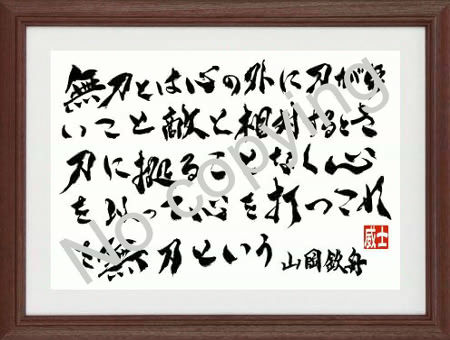 無刀とは心の外に刀が無
いこと敵と相対するとき
刀に拠ることなく心
を以って心を打つこれ
を無刀という 山岡鉄舟
威士
No copying